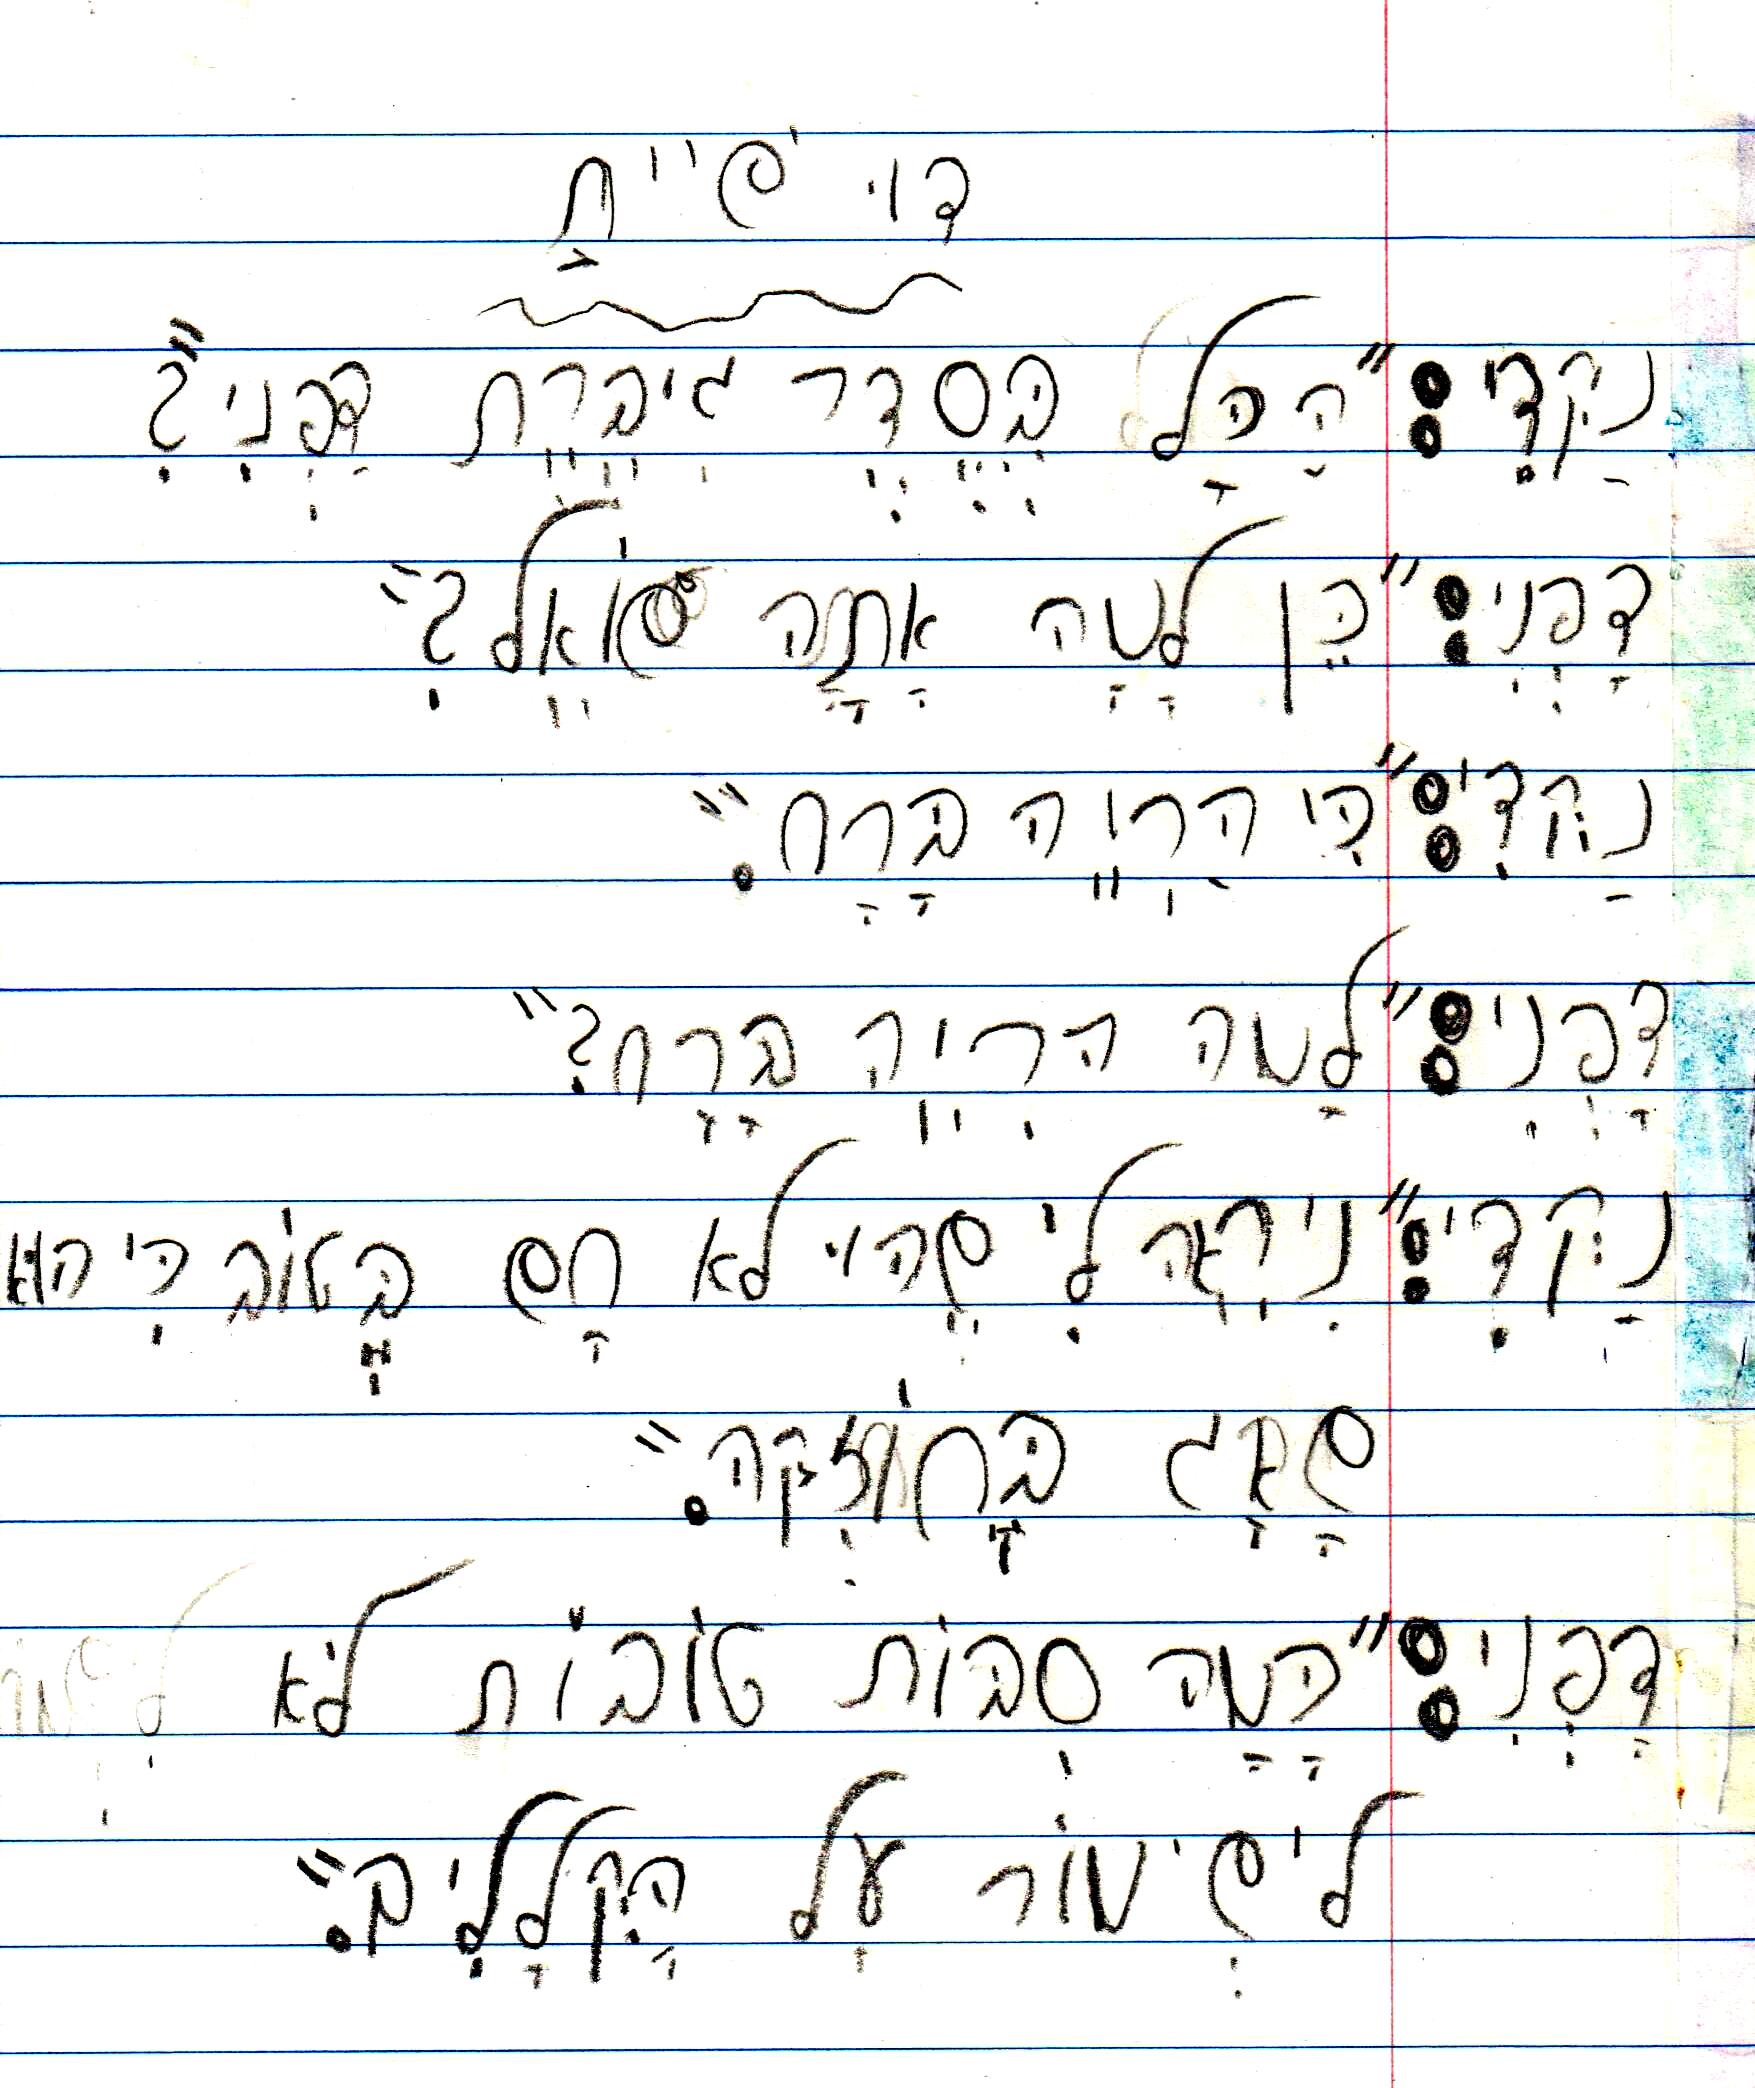 דוי שיית
נקדי: "הכל בסדר גיברת דפני?"
דפני: "כן למה אתה שואל?"
נקדי: "כי הריה ברח."
דפני: "למה הריה ברח?"
נקדי: "ניראה לי שהוי לא חש בטוב כי הוא
שאג בחוזקה."
דפני: "כמה סבות טובות לא
לישימור על הקללים."